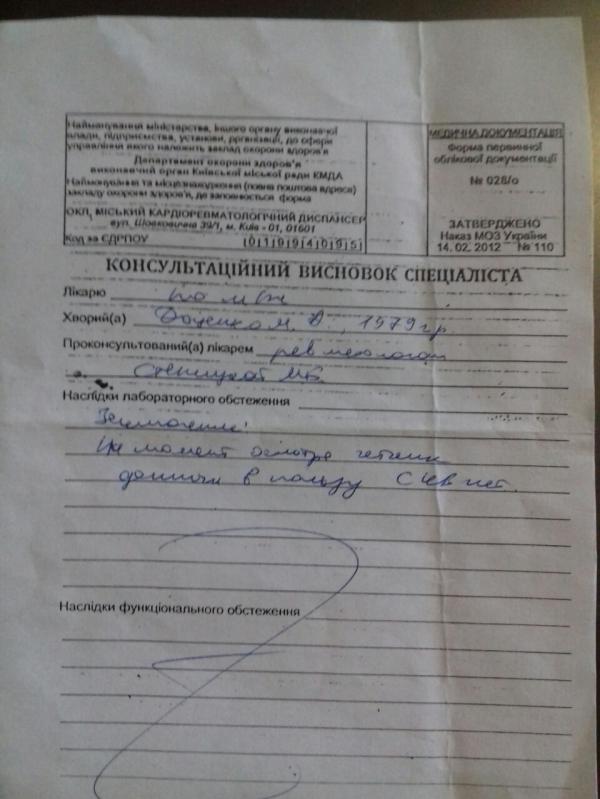 Найменування міністерства, іншого органу виконавчої
влади, підприємства, установи, організації, до сфери
управління якого належить заклад охорони здоров'я
Департамент охорони здоров'я
виконавчий орган Київської міської ради КМДА
Найменування та місцезнаходження (повна поштова адреса)
закладу охорони здоров'я, де заповнюється форма
ОКЛ, МІСЬКИЙ КАРДІОРЕВМАТОЛОГІЧНИЙ ДИСПАНСЕР
вул. Шовковична 39/1, м. Київ - 01, 01601
Код за ЄДРПОУ 01994095
МЕДИЧНА ДОКУМЕНТАЦІЯ
Форма первинної
облікової документації
№ 028/о
ЗАТВЕРДЖЕНО
Наказ МОЗ України
14. 02. 2012 № 110
КОНСУЛЬТАЦІЙНИЙ ВИСНОВОК СПЕЦІАЛІСТА
Лікарю по м/ж
Хворий(а) 1979 гр.
Проконсультований(а) лікарем ревматологом
Наслідки лабораторного обстеження
Заключение:
На момент осмотра четких
данных в пользу СЧВ нет.
Наслідки функціонального обстеження